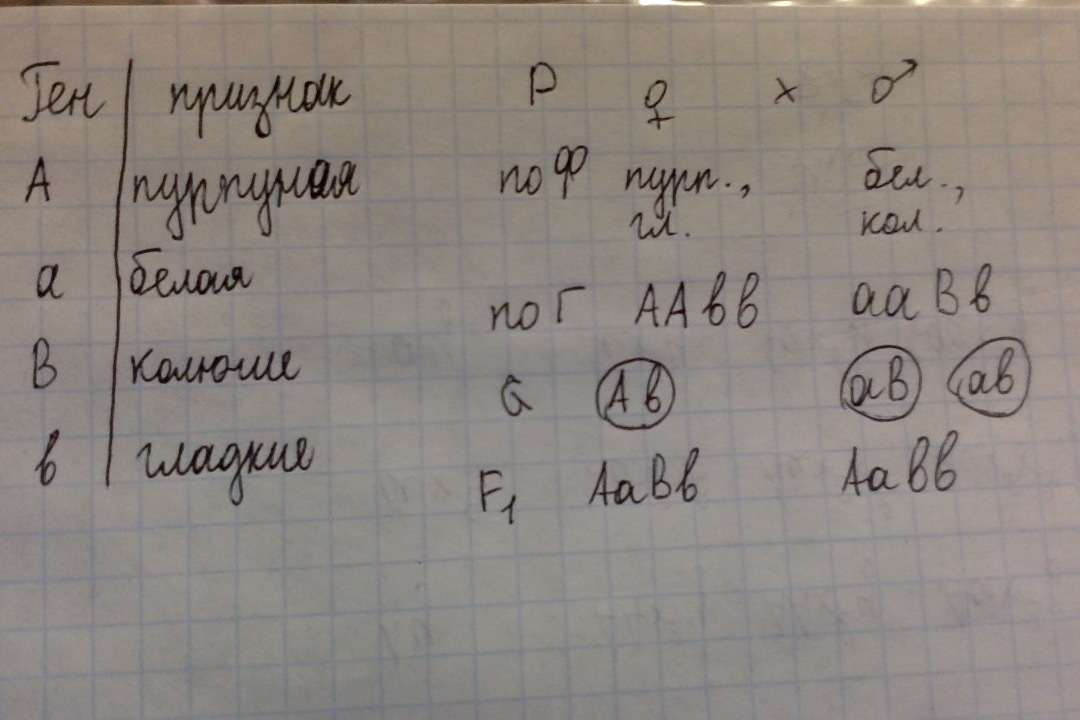 Ген признак P ♀ × ♂
А пурпурная по Ф пурп., бел.,
гл. кол.
а белая
по Г ААвв ааВв
В колючие
G Ав аВ ав
в гладкие
F₁ АаВв Аавв